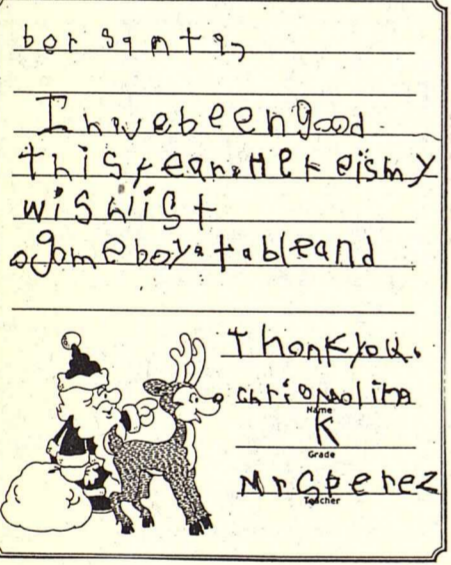 ber santa,
I have been good
this year. Here is my
wishlist
a game boy a table and
Thank you.
chris molina
Name
K
Grade
Mrs perez
Teacher